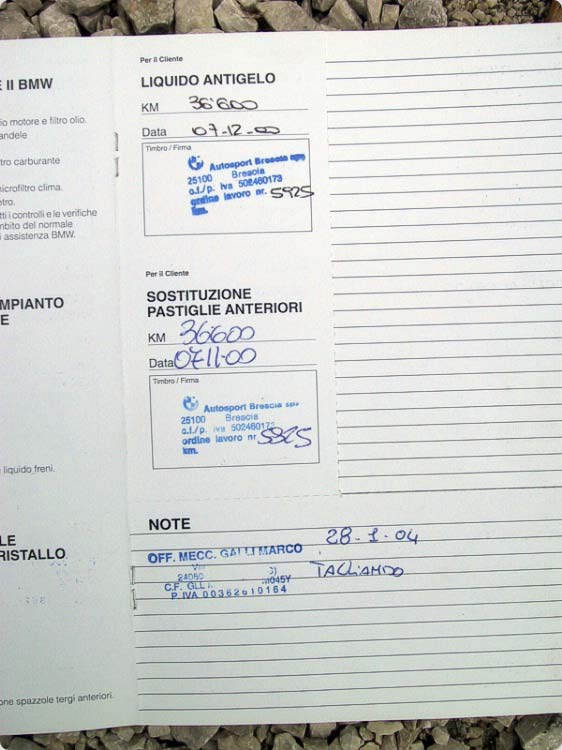 E II BMW
io motore e filtro olio.
andele
tro carburante
microfiltro clima.
etro.
tti i controlli e le verifiche
mbito del normale
i assistenza BMW.
MPIANTO
E
liquido freni.
LE
RISTALLO
one spazzole tergi anteriori.
Per il Cliente
LIQUIDO ANTIGELO
KM 36'600
Data 07-12-00
Timbro / Firma
Autosport Brescia spa
25100 Brescia
c.f./p. iva 502460173
ordine lavoro nr. 5925
km.
Per il Cliente
SOSTITUZIONE
PASTIGLIE ANTERIORI
KM 36600
Data 07-11-00
Timbro / Firma
Autosport Brescia spa
25100 Brescia
c.f./p. iva 502460173
ordine lavoro nr 5925
km.
NOTE
28-1-04
OFF. MECC. GALLI MARCO
TAGLIANDO
C.F. GLL M045Y
P. IVA 00362610164